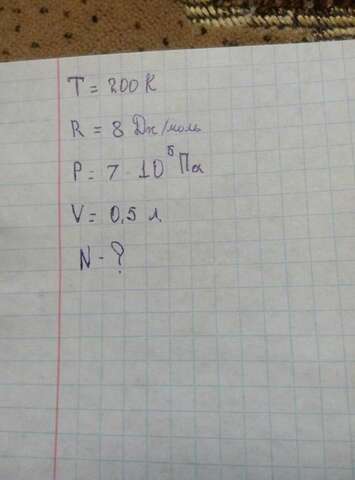 T = 200 К
R = 8 Дж/моль
P = 7 · 10⁵ Па
V = 0,5 л
N - ?